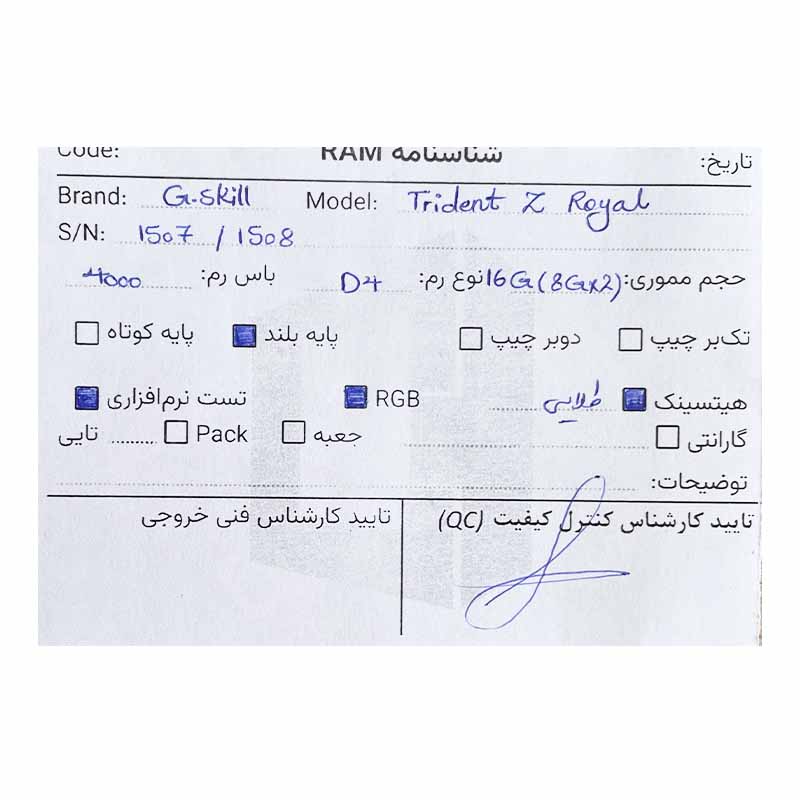 Code: شناسنامه RAM تاریخ:
Brand: G.Skill Model: Trident Z Royal
S/N: 1507 / 1508
حجم مموری: 16G (8G×2) نوع رم: D4 باس رم: 4000
تک‌بر چیپ دوبر چیپ پایه بلند پایه کوتاه
هیتسینک طلایی RGB تست نرم‌افزاری
گارانتی جعبه Pack تایی
توضیحات:
تایید کارشناس کنترل کیفیت (QC) تایید کارشناس فنی خروجی